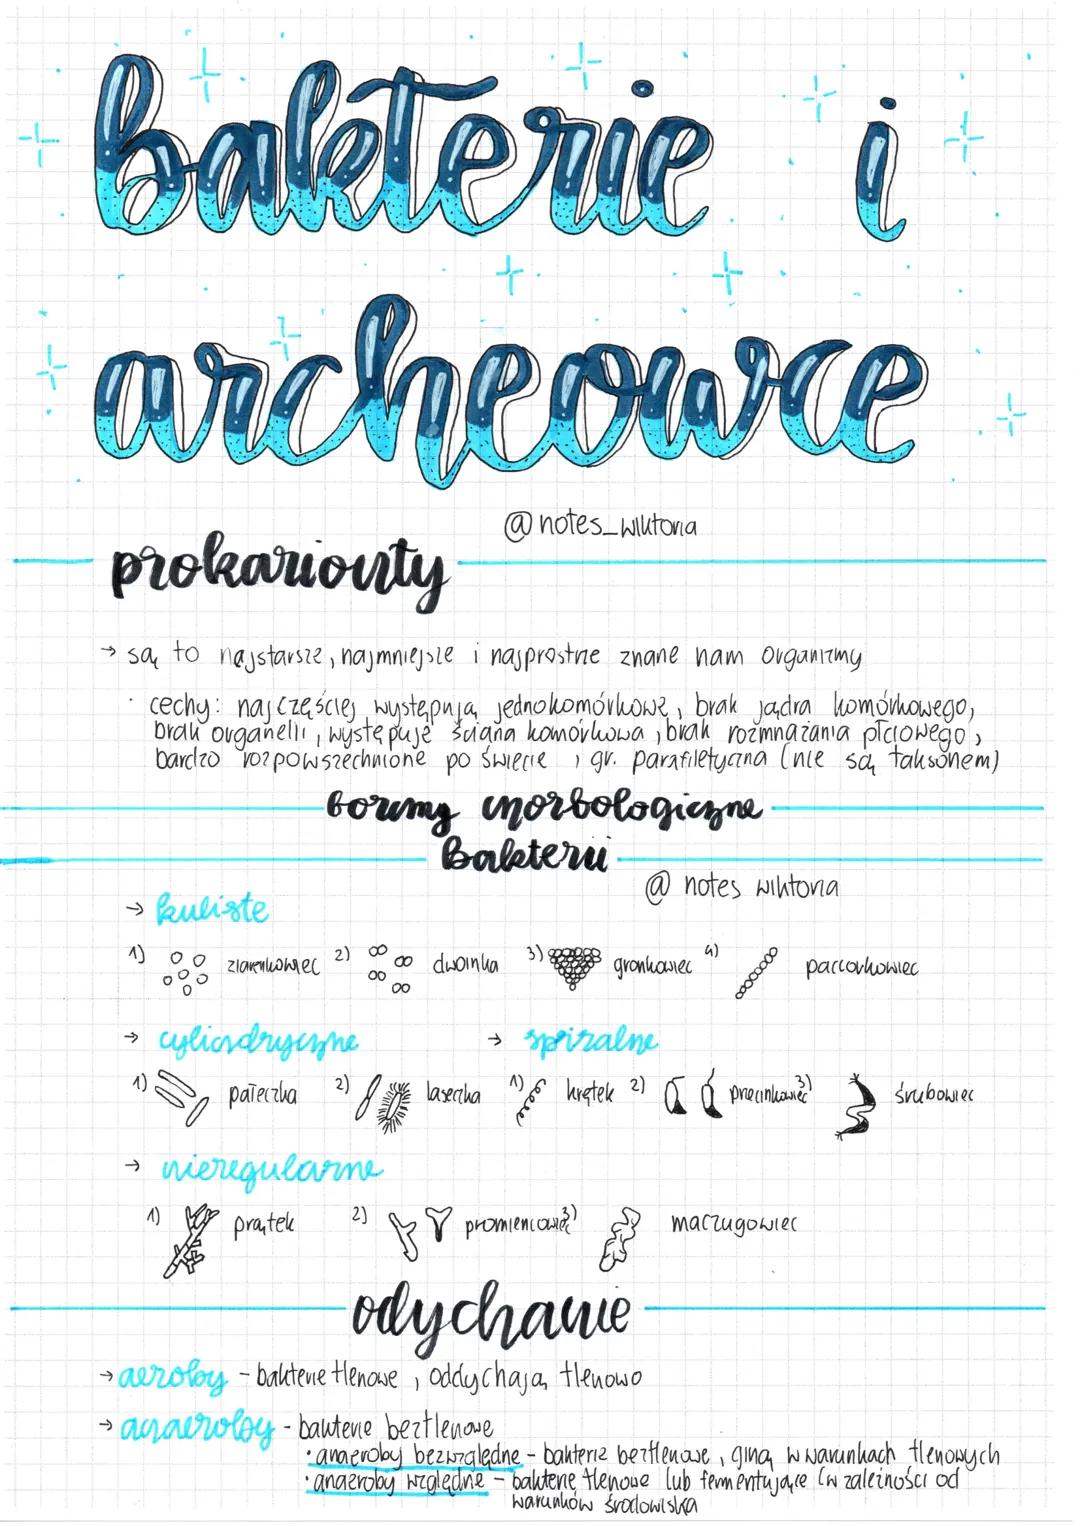 bakterie i
archeowce
@notes_wiktoria
prokarionty
→ są to najstarsze, najmniejsze i najprostrze znane nam organizmy
· cechy: najczęściej występują jednokomórkowe, brak jądra komórkowego,
brak organelli, występuje ściana komórkowa, brak rozmnażania płciowego,
bardzo rozpowszechnione po świecie, gr. parafiletyczna (nie są taksonem)
formy morfologiczne
Bakterii
@ notes wiktoria
→ kuliste
1) ziarenkowiec 2) dwoinka 3) gronkowiec 4) paciorkowiec
→ cylindryczne → spiralne
1) pałeczka 2) laseczka 1) krętek 2) przecinkowiec 3) śrubowiec
→ nieregularne
1) prątek 2) promieniowiec 3) maczugowiec
odychanie
→ aeroby - bakterie tlenowe, oddychają tlenowo
→ anaeroby - bakterie beztlenowe
· anaeroby bezwzględne - bakterie beztlenowe, giną w warunkach tlenowych
· anaeroby względne - bakterie tlenowe lub fermentujące (w zależności od
warunków środowiska